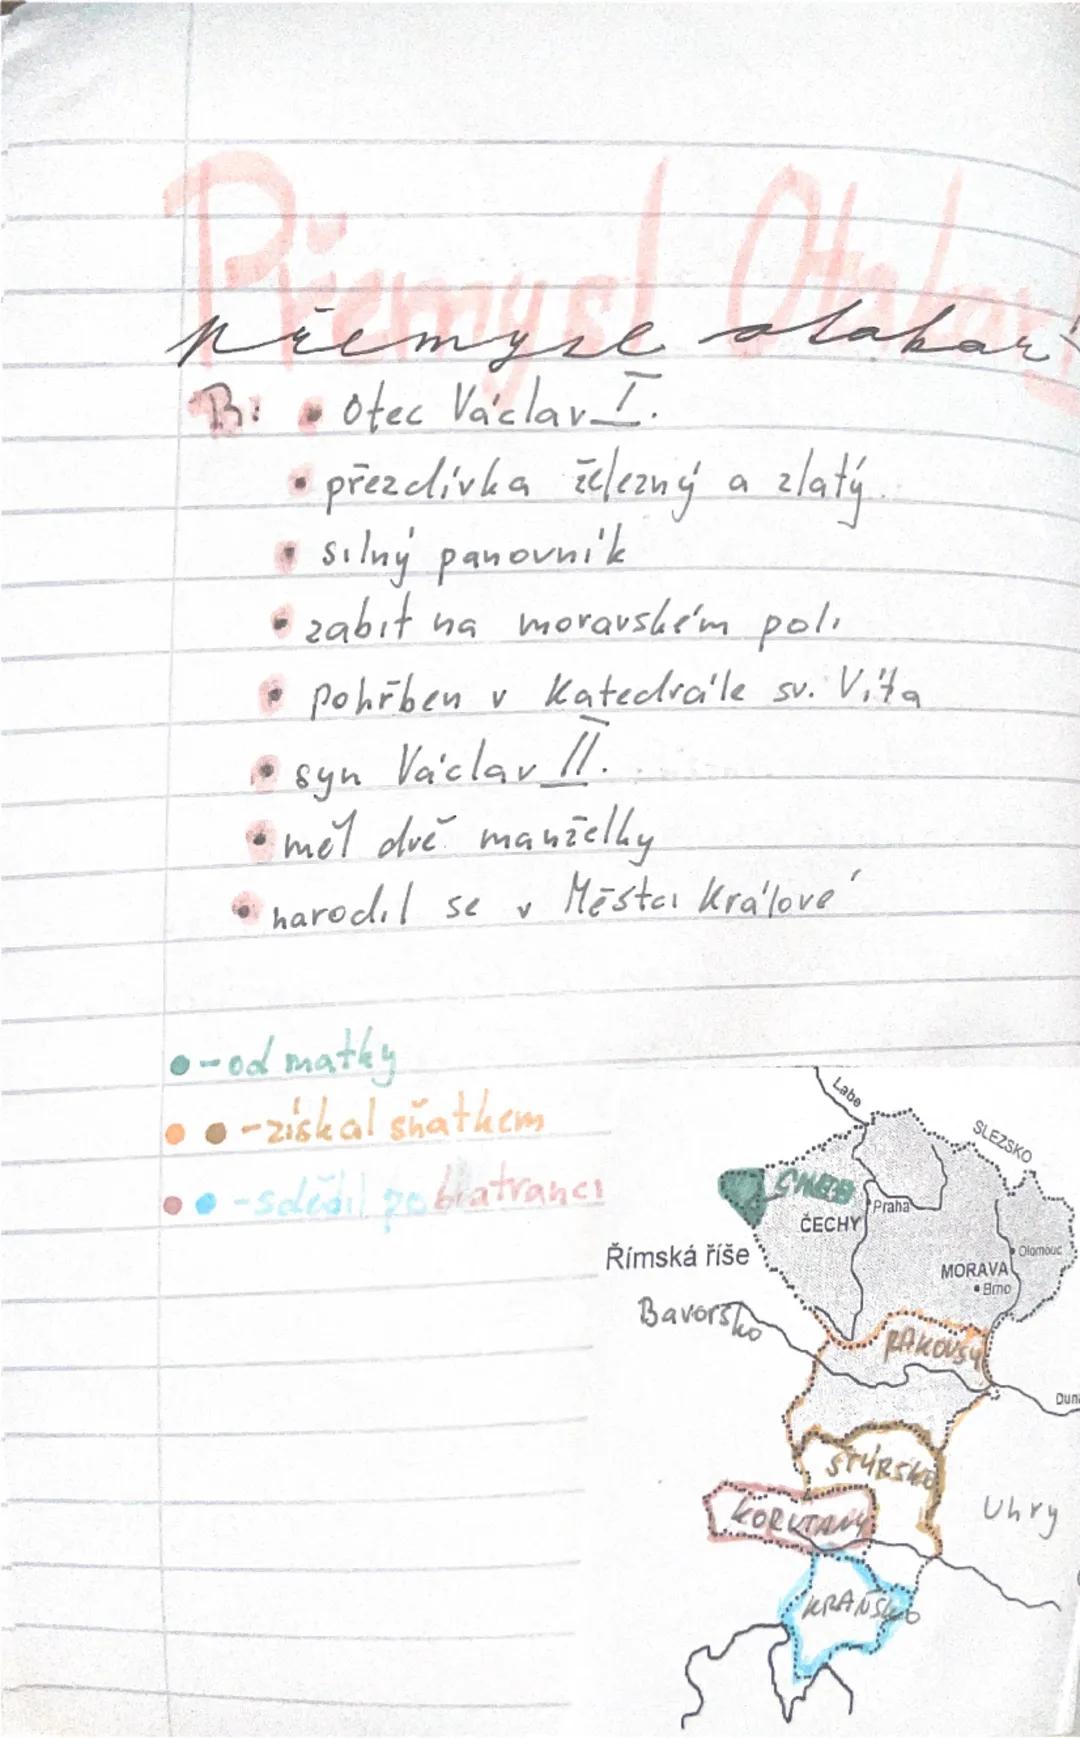 Přemysl Otakar
přemysl otakar
B: • otec Václav I.
• přezdívka železný a zlatý
• silný panovník
• zabit na moravském poli
• pohřben v Katedrále sv. Víta
• syn Václav II.
• měl dvě manželky
• narodil se v Městci Králové
• - od matky
• • - získal sňatkem
• • - sdědil po bratranci
Labe
SLEZSKO
CHEB
Praha
ČECHY
Olomouc
Římská říše
MORAVA
• Brno
Bavorsko
RAKOUSY
Dun
ŠTÝRSKO
KORUTANY
Uhry
KRAŇSKO